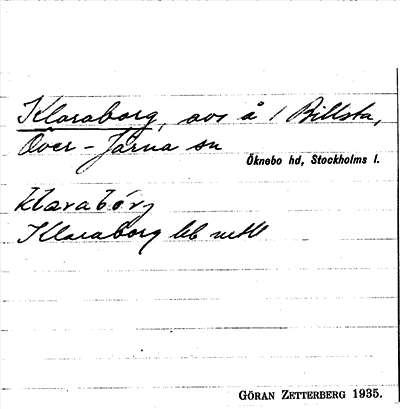 Klaraborg, avs å 1 Billsta,
Över-Järna sn
Öknebo hd, Stockholms l.
klarabórj
Klaraborg
GÖRAN ZETTERBERG 1935.